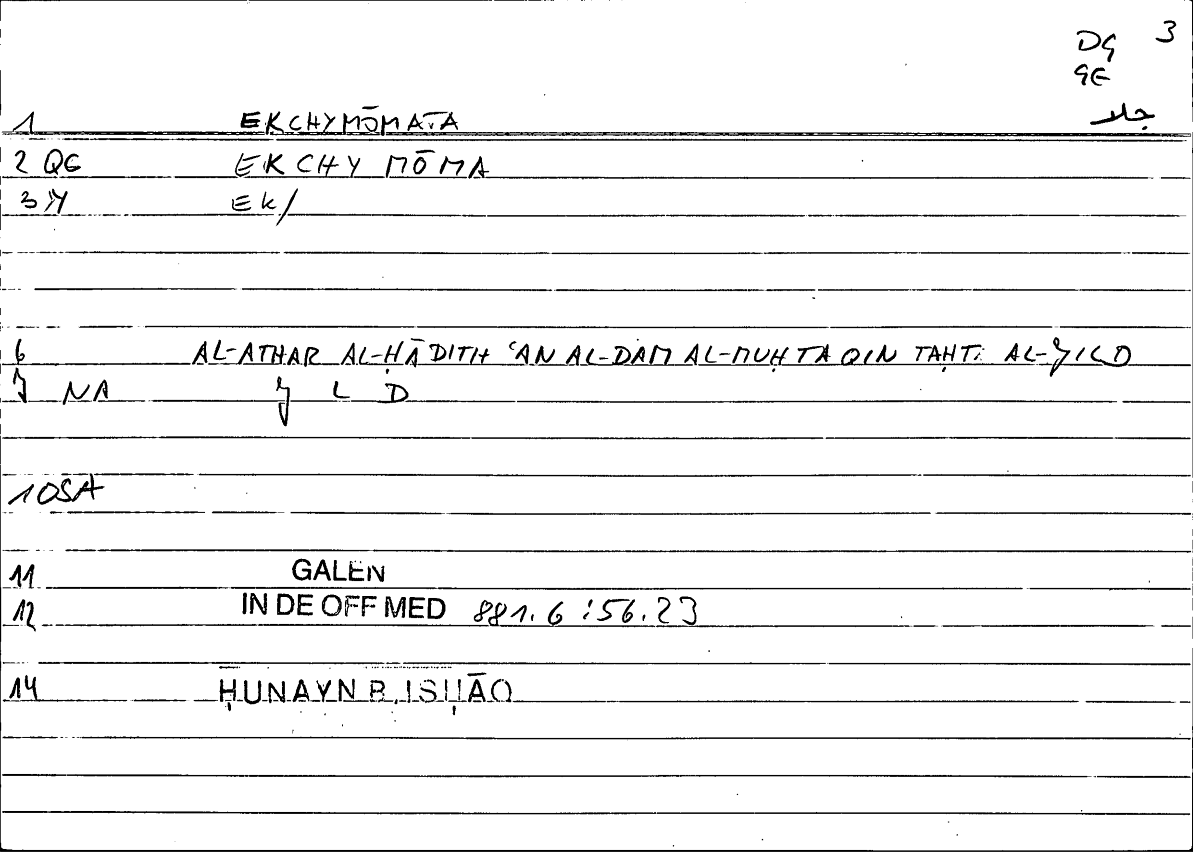 DG 3
GE
جلد
1 EKCHYMŌMATA
2 QG EKCHYMŌMA
3 Y EK/
6 AL-ATHAR AL-ḤĀDITH ʿAN AL-DAM AL-MUḤTAQIN TAḤT. AL-JILD
J NA J L D
10SA
11 GALEN
12 IN DE OFF MED 881.6 : 56.23
14 ḤUNAYN B. ISḤĀQ